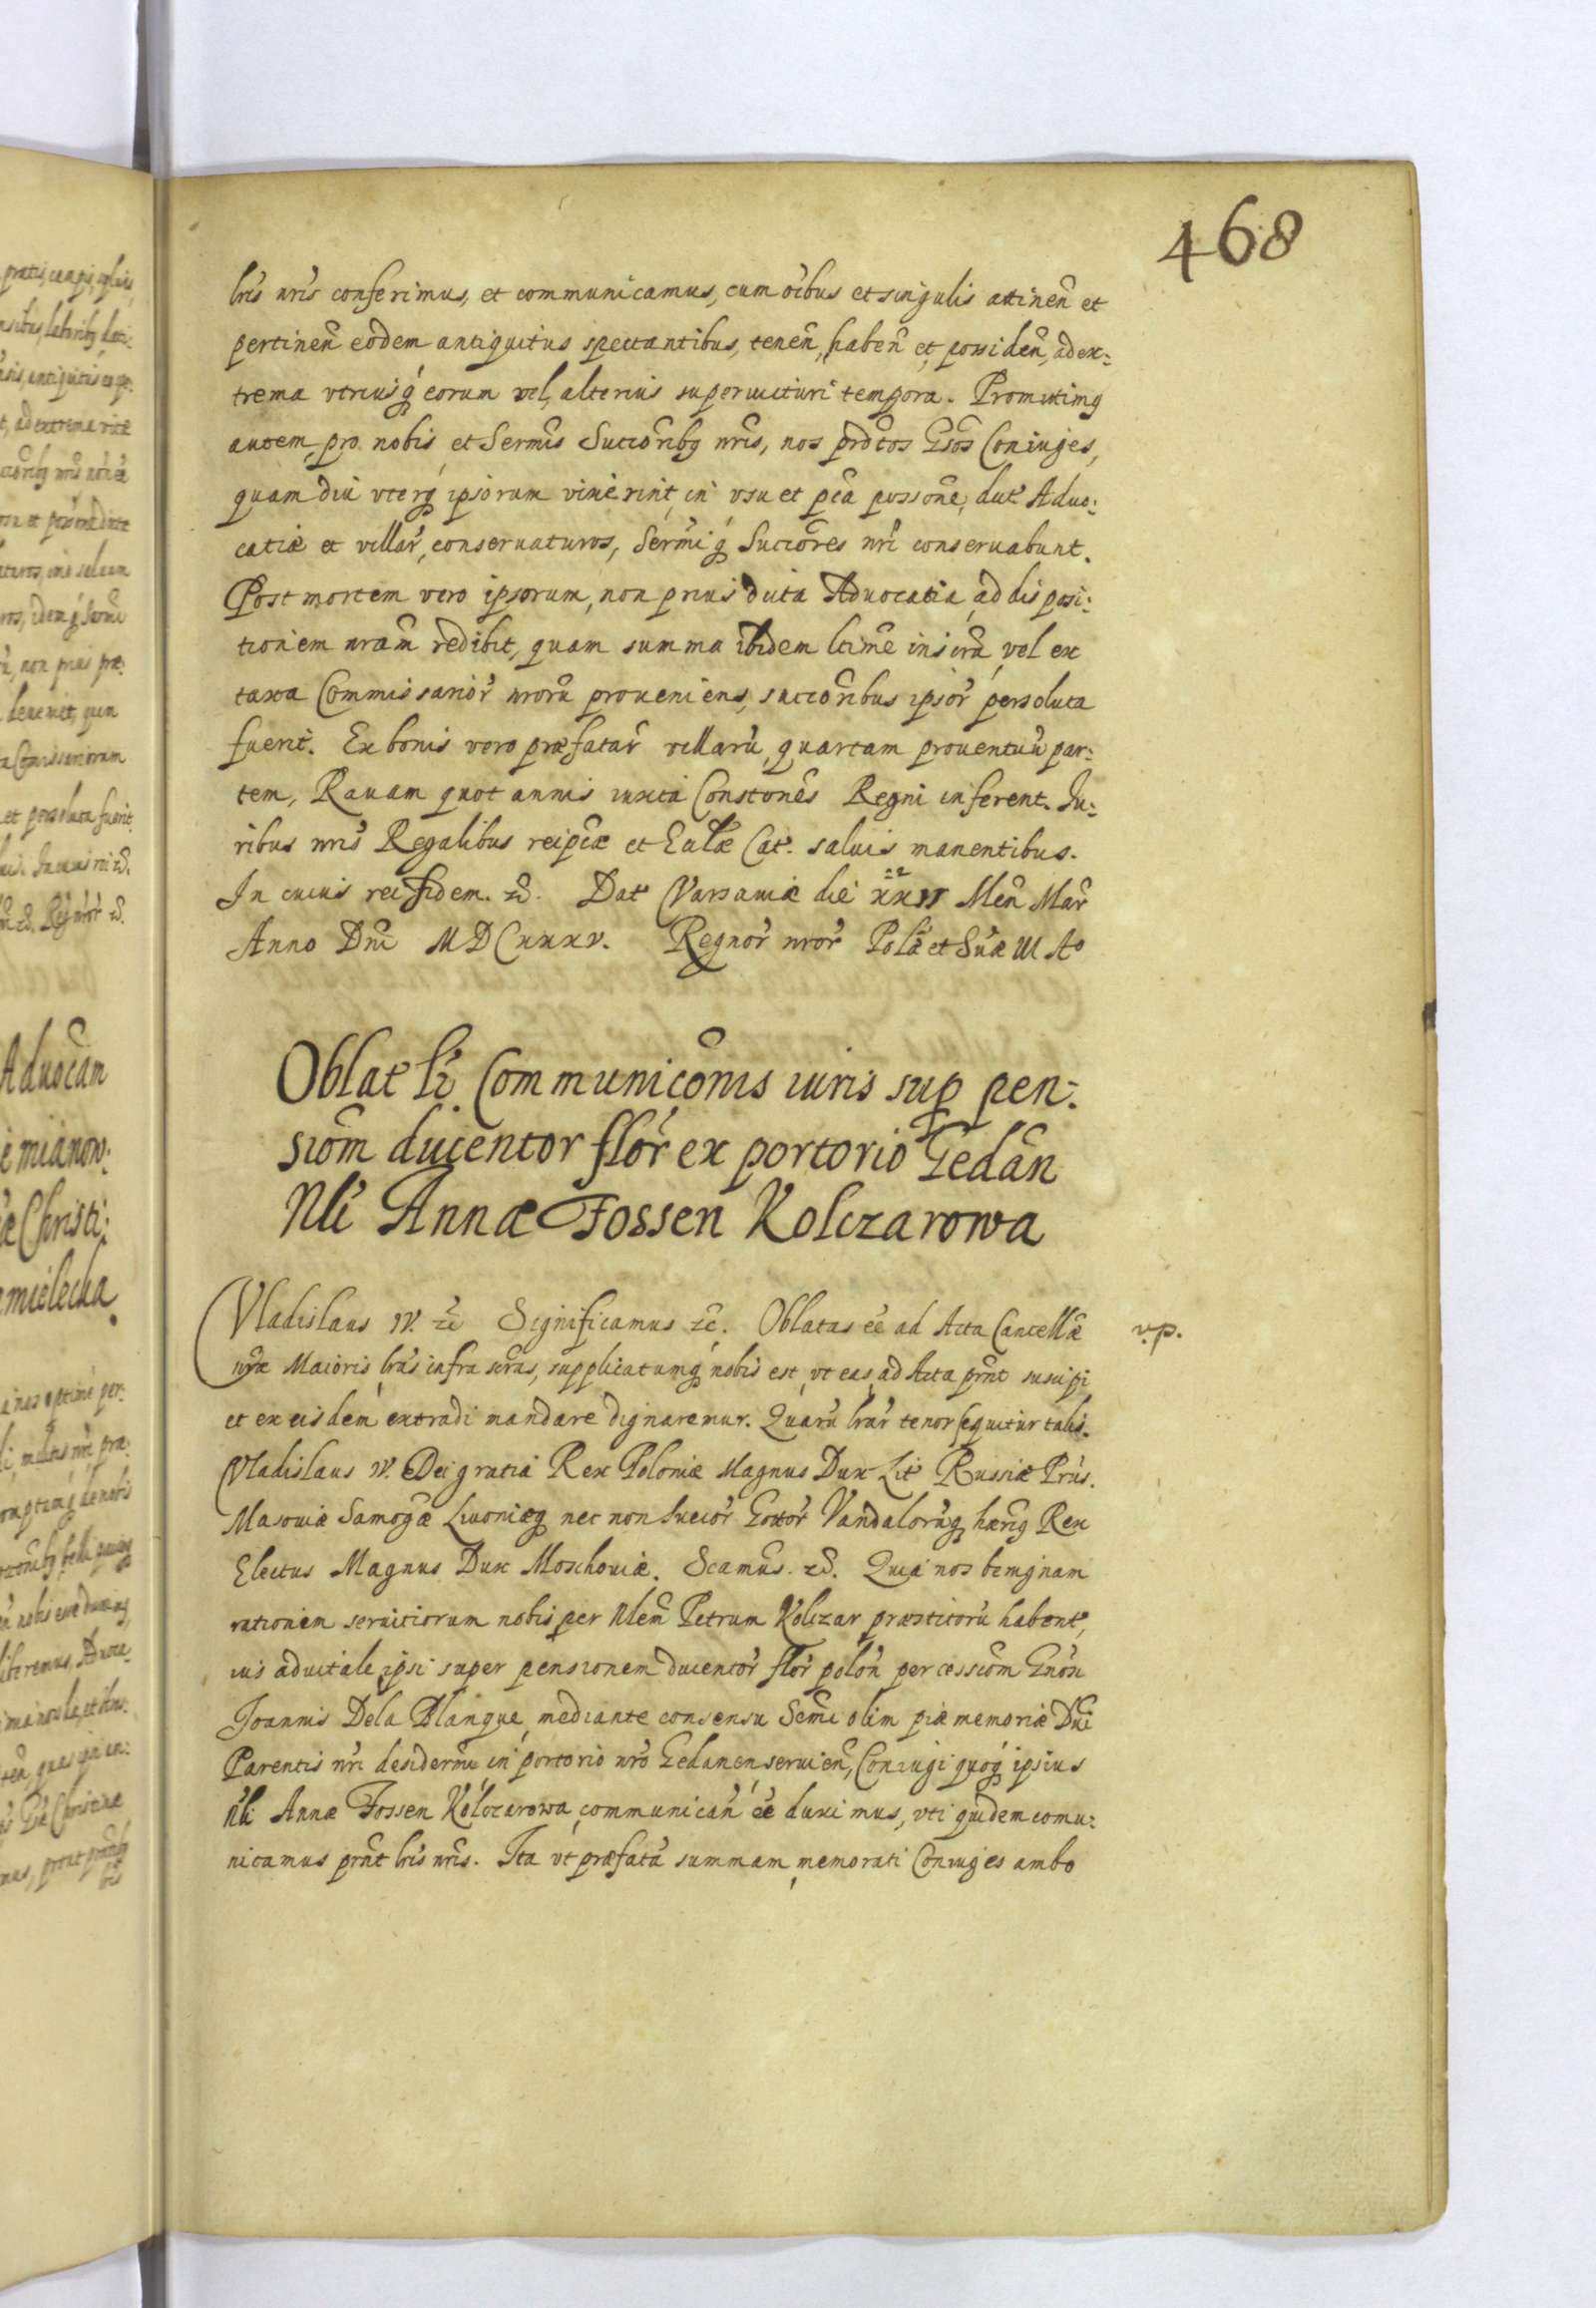 468
lris nris conferimus, et communicamus, cum oibus et singulis attinen et
pertinen eodem antiquitus spectantibus, tenen, haben et possiden, ad ex:
trema vtriusq eorum vel alterius superuicturi tempora. Promittimq
autem pro nobis et Sermis Succoribq nris, nos prdctos Gsos Coniuges,
quam diu vterq ipsorum vixerint, in vsu et pca possone, dut Aduo:
catiæ et villar, conseruaturos, Sermiq Succores nri conseruabunt.
Post mortem vero ipsorum, non prius dicta Aduocatia ad disposi:
tionem nram redibit, quam summa ibidem ltime inscra, vel ex
taxa Commissarior nroru proueniens, succoribus ipsor persoluta
fuerit. Ex bonis vero præfatar villaru, quartam prouentuu par:
tem, Rauam quot annis iuxta Constones Regni inferent. Iu:
ribus nris Regalibus reipcæ et Ecclæ Cat. saluis manentibus.
In cuius rei fidem. &c. Dat Varsauiæ die xxii Men Mar
22
Anno Dni MDCxxxv. Regnor nror Polæ et Suæ III Ao
Oblat lr Communiconis iuris sup pen:
siom ducentor flor ex portorio Gedan
Nli Annæ Fossen Kolczarowa
Vladislaus IV. &c Significamus &c. Oblatas ee ad Acta Cancellæ
v.p.
nræ Maioris lras infra scras, supplicatumq nobis est, vt eas ad Acta prnt suscipi
et ex eisdem extradi mandare dignaremur. Quaru lrar tenor sequitur talis.
Vladislaus IV. Dei gratia Rex Poloniæ Magnus Dux Lit Russiæ Prus.
Masouiæ Samogæ Liuoniæq nec non Suecor Gottor Vandaloruq hæriq Rex
Electus Magnus Dux Moschouiæ. Scamus. &c. Quia nos benignam
rationem seruitiorum nobis per Nlem Petrum Kolczar præstitoru habent,
ius aduitale ipsi super pensionem ducentor flor polon per cessiom Gnosi
Joannis Dela Blanque mediante consensu Sermi olim piæ memoriæ Dni
Parentis nri desidermi in portorio nro Gedanen seruien, Coniugi quoq ipsius
Nli Annæ Fossen Kolczarowa, communican ee duximus, vti quidem comu:
nicamus prnt lris nris. Ita vt præfata summam memorati Coniuges ambo